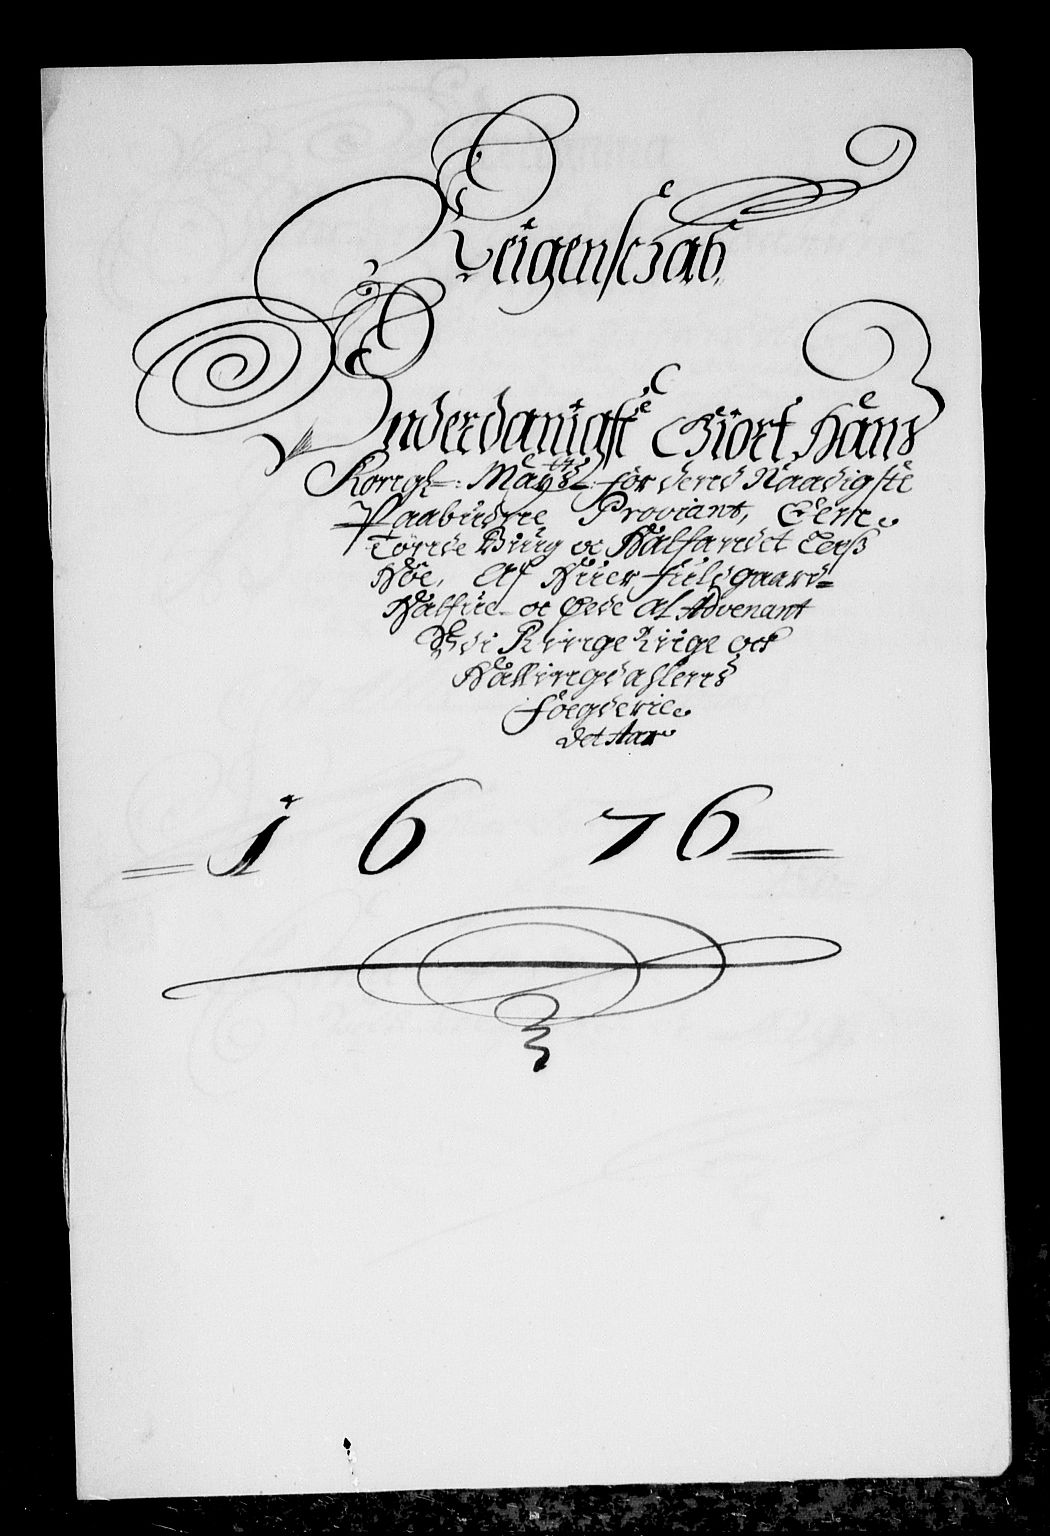 Reigenschab,
Underdanigst Giort Hans
Kongl: Mayts: for deris Naadigste
Paabudne Proviant, Een
Tønde Biug oc Halfandet Leß
Høe, Af Huer fuldgaard
Halfue oc Øde Af Advenant
Udi Ringe Riige och
Hallingdahlens
foegderie
det Aar
1676